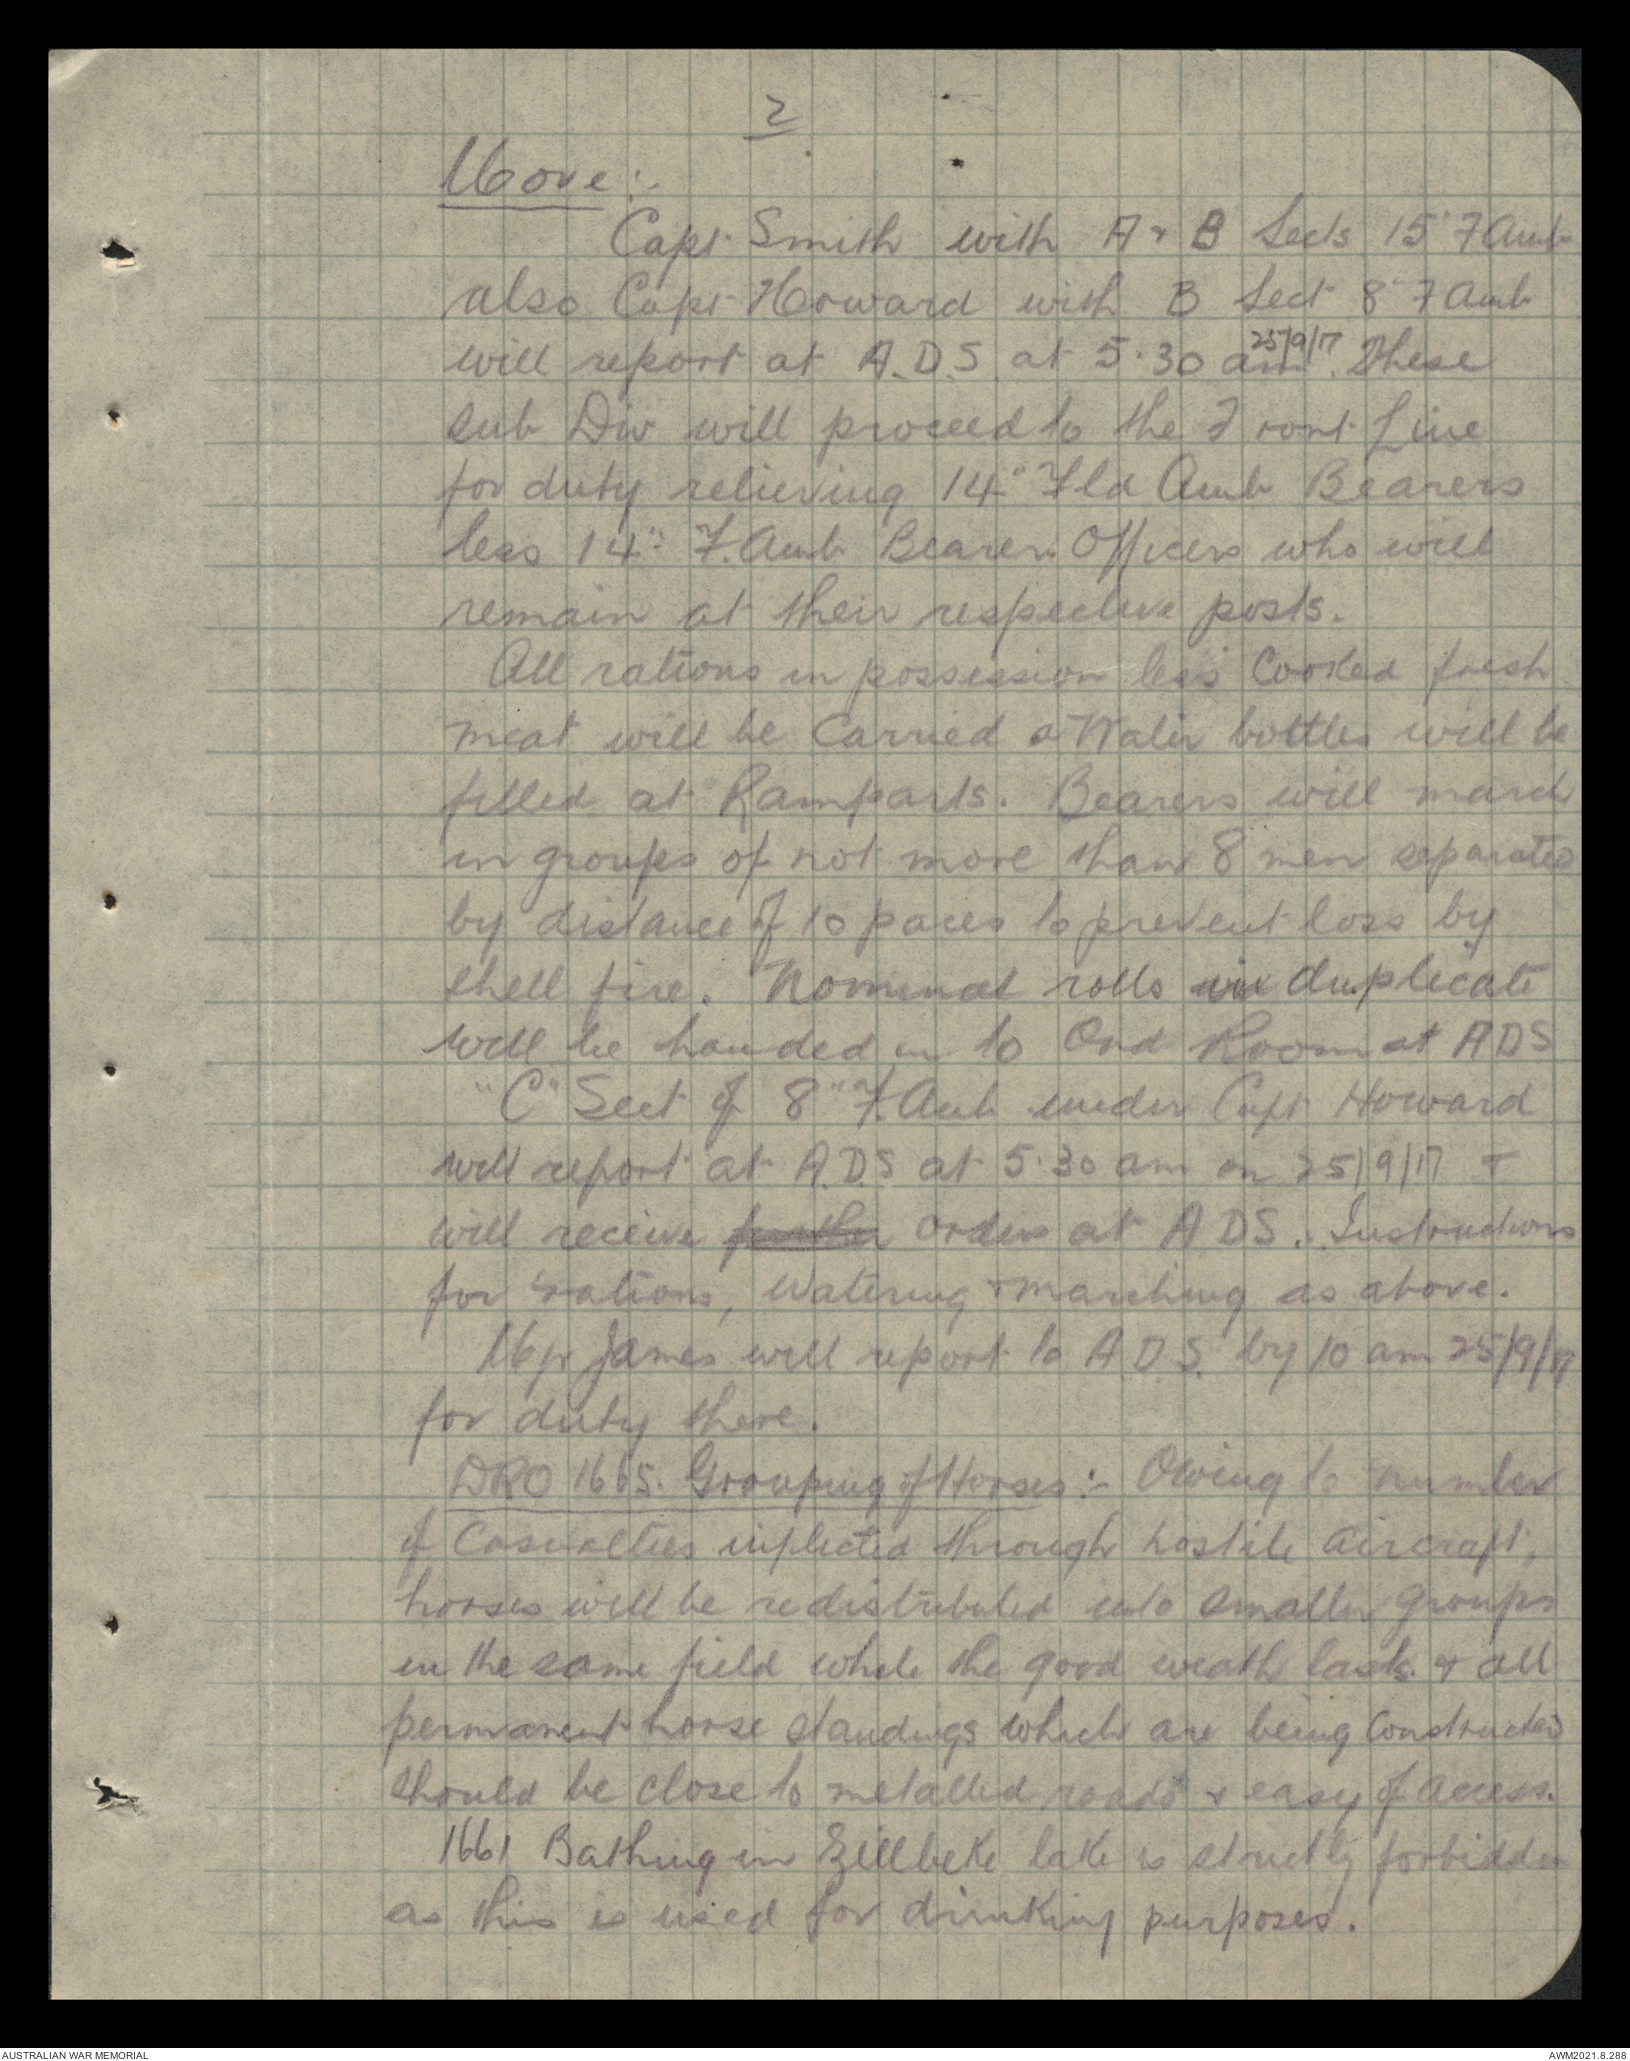 2
Move:-
Capt. Smith with A & B Sects 15" F Amb
also Capt Howard with B Sect 8" F Amb
will report at A.D.S. at 5.30 am 25/9/17. These
sub Div will proceed to the Front Line
for duty relieving 14" Fld Amb Bearers
less 14" F. Amb Bearer Officers who will
remain at their respective posts.
All rations in possession less Cooked fresh
meat will be Carried & Water bottles will be
filled at Ramparts. Bearers will march
in groups of not more than 8 men separated
by distance of 10 paces to prevent loss by
shell fire. Nominal rolls in duplicate
will be handed in to Ord Room at ADS
"C" Sect of 8" F. Amb under Capt Howard
will report at A.D.S at 5.30 am on 25/9/17 &
will receive further orders at ADS. Instructions
for rations, Watering & marching as above.
Mjr James will report to A.D.S. by 10 am 25/9/17
for duty there.
DRO 1665. Grouping of Horses:- Owing to number
of Casualties inflicted through hostile aircraft,
horses will be redistributed into smaller groups
in the same field while the good weath lasts & all
permanent horse standings which are being Constructed
should be close to metalled roads & easy of access.
1661 Bathing in Zillbeke lake is strictly forbidden
as this is used for drinking purposes.
AUSTRALIAN WAR MEMORIAL
AWM2021.8.288